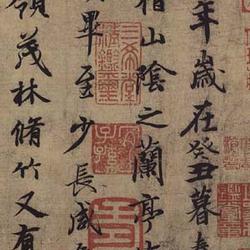 年歲在癸丑暮春
稽山陰之蘭亭
畢至少長咸
嶺茂林脩竹又有